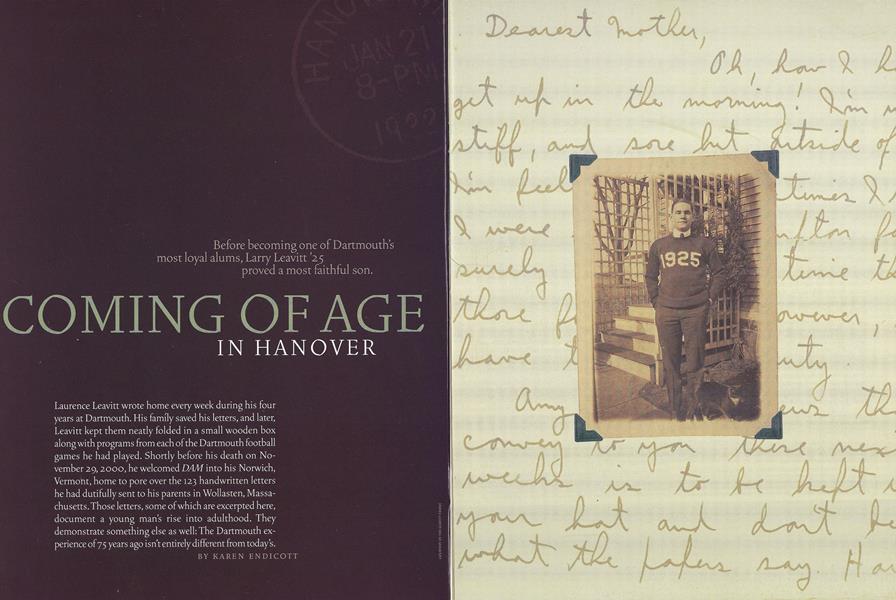 HANO
JAN 21
8-PM
1922
Before becoming one of Dartmouth's
most loyal alums, Larry Leavitt '25
proved a most faithful son.
COMING OF AGE
IN HANOVER
Laurence Leavitt wrote home every week during his four
years at Dartmouth. His family saved his letters, and later,
Leavitt kept them neatly folded in a small wooden box
along with programs from each of the Dartmouth football
games he had played. Shortly before his death on No-
vember 29, 2000, he welcomed DAM into his Norwich,
Vermont, home to pore over the 123 handwritten letters
he had dutifully sent to his parents in Wollasten, Massa-
chusetts. Those letters, some of which are excerpted here,
document a young man's rise into adulthood. They
demonstrate something else as well: The Dartmouth ex-
perience of 75 years ago isn't entirely different from today's.
BY KAREN ENDICOTT
Dearest Mother,
Oh, how I h
get up in the morning! I'm
stiff, and sore but outside of
I'm feel times I
I were
surely time th
those owever,
have uty.
1925
Any ews th
convey to you these nex
weeks is to be kept
your hat and don't
what the papers say.